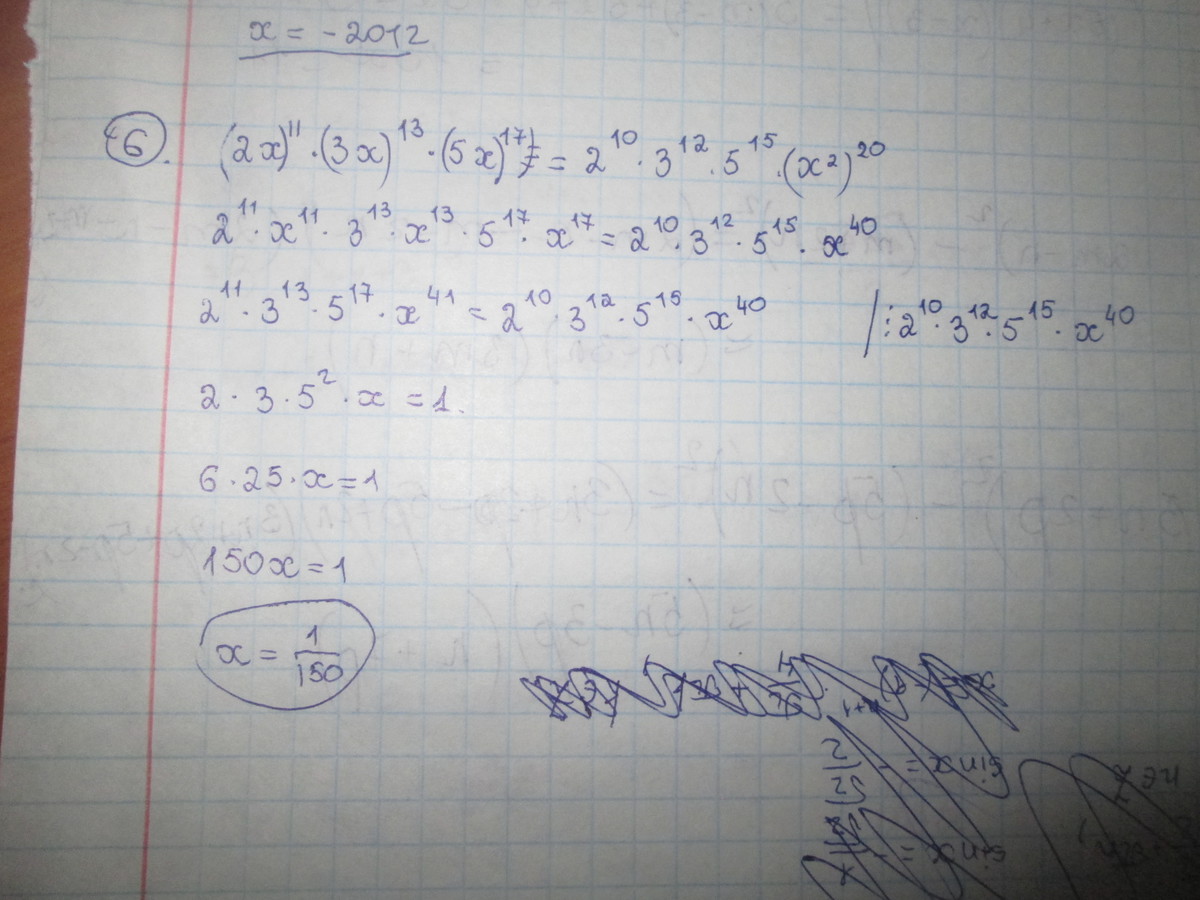 x = -2012
6. (2x)¹¹·(3x)¹³·(5x)¹⁷ = 2¹⁰·3¹²·5¹⁵·(x²)²⁰
2¹¹·x¹¹·3¹³·x¹³·5¹⁷·x¹⁷ = 2¹⁰·3¹²·5¹⁵·x⁴⁰
2¹¹·3¹³·5¹⁷·x⁴¹ = 2¹⁰·3¹²·5¹⁵·x⁴⁰ /:2¹⁰·3¹²·5¹⁵·x⁴⁰
2·3·5²·x = 1.
6·25·x = 1
150x = 1
x = 1/150
sin x = -
sin x = -